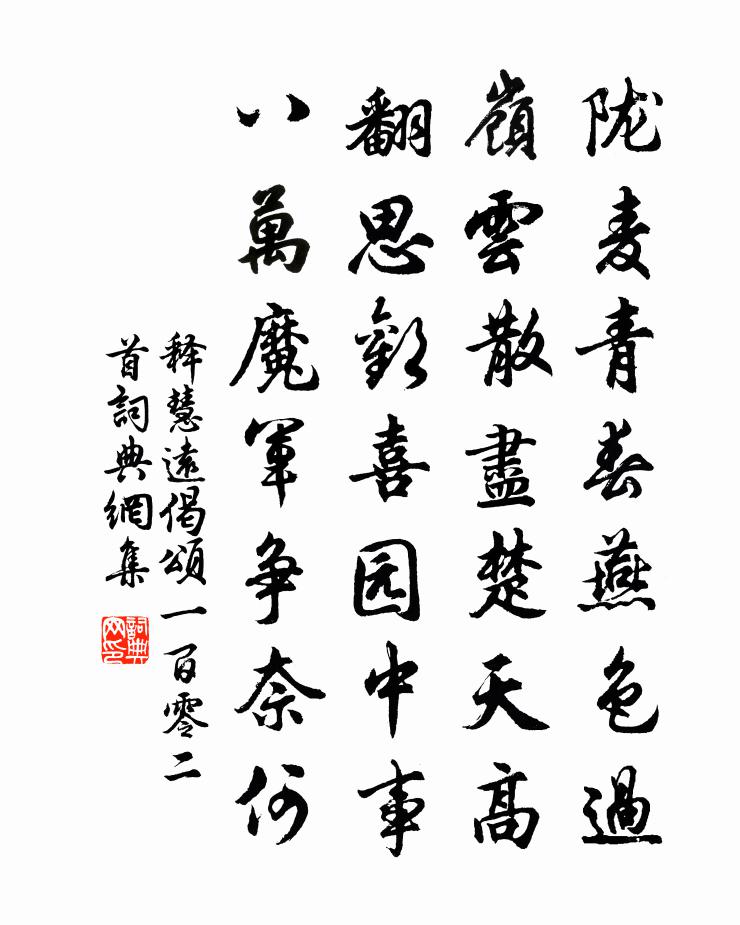 陇麦青春燕色過
嶺雲散盡楚天高
翻思歡喜园中事
八萬魔軍争奈何
释慧遠偈頌一百零二
首詞典網集
詞典网印